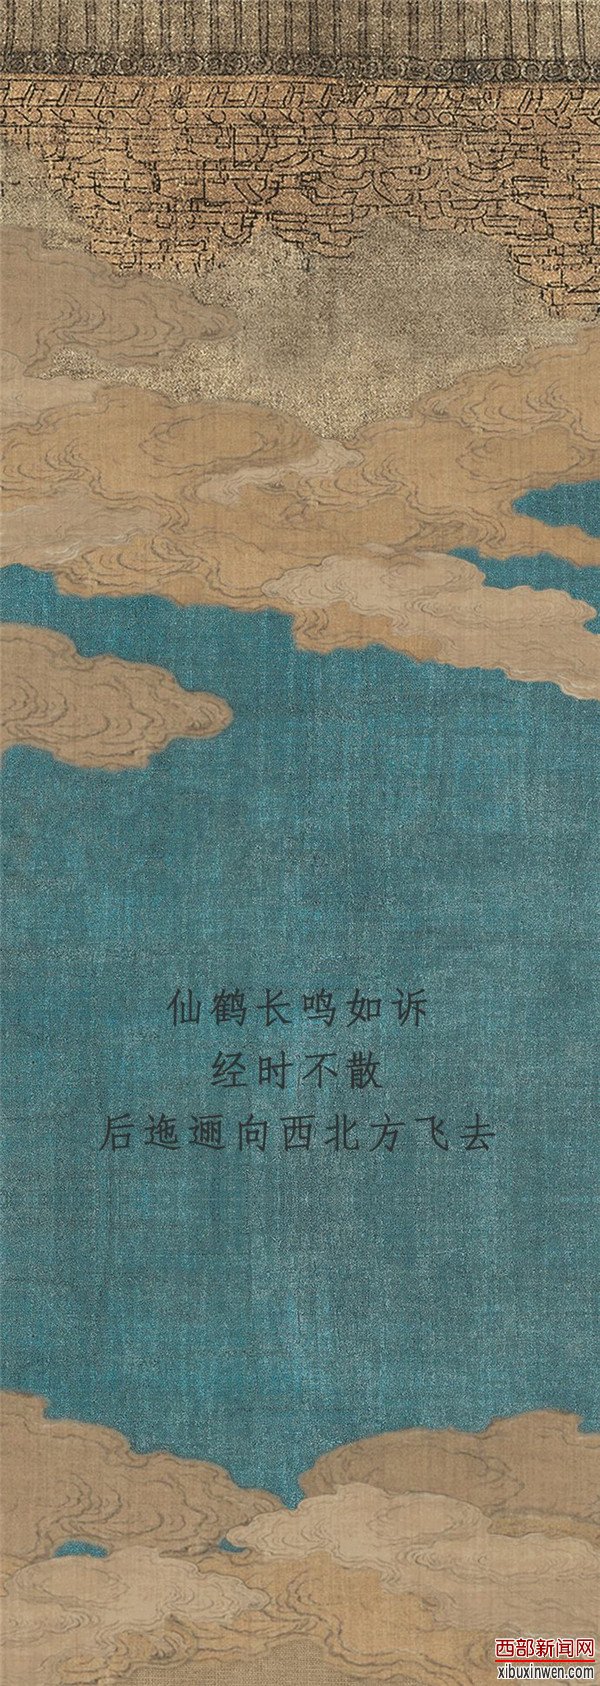 仙鹤长鸣如诉
经时不散
后迤逦向西北方飞去
西部新闻网
xibuxinwen.com